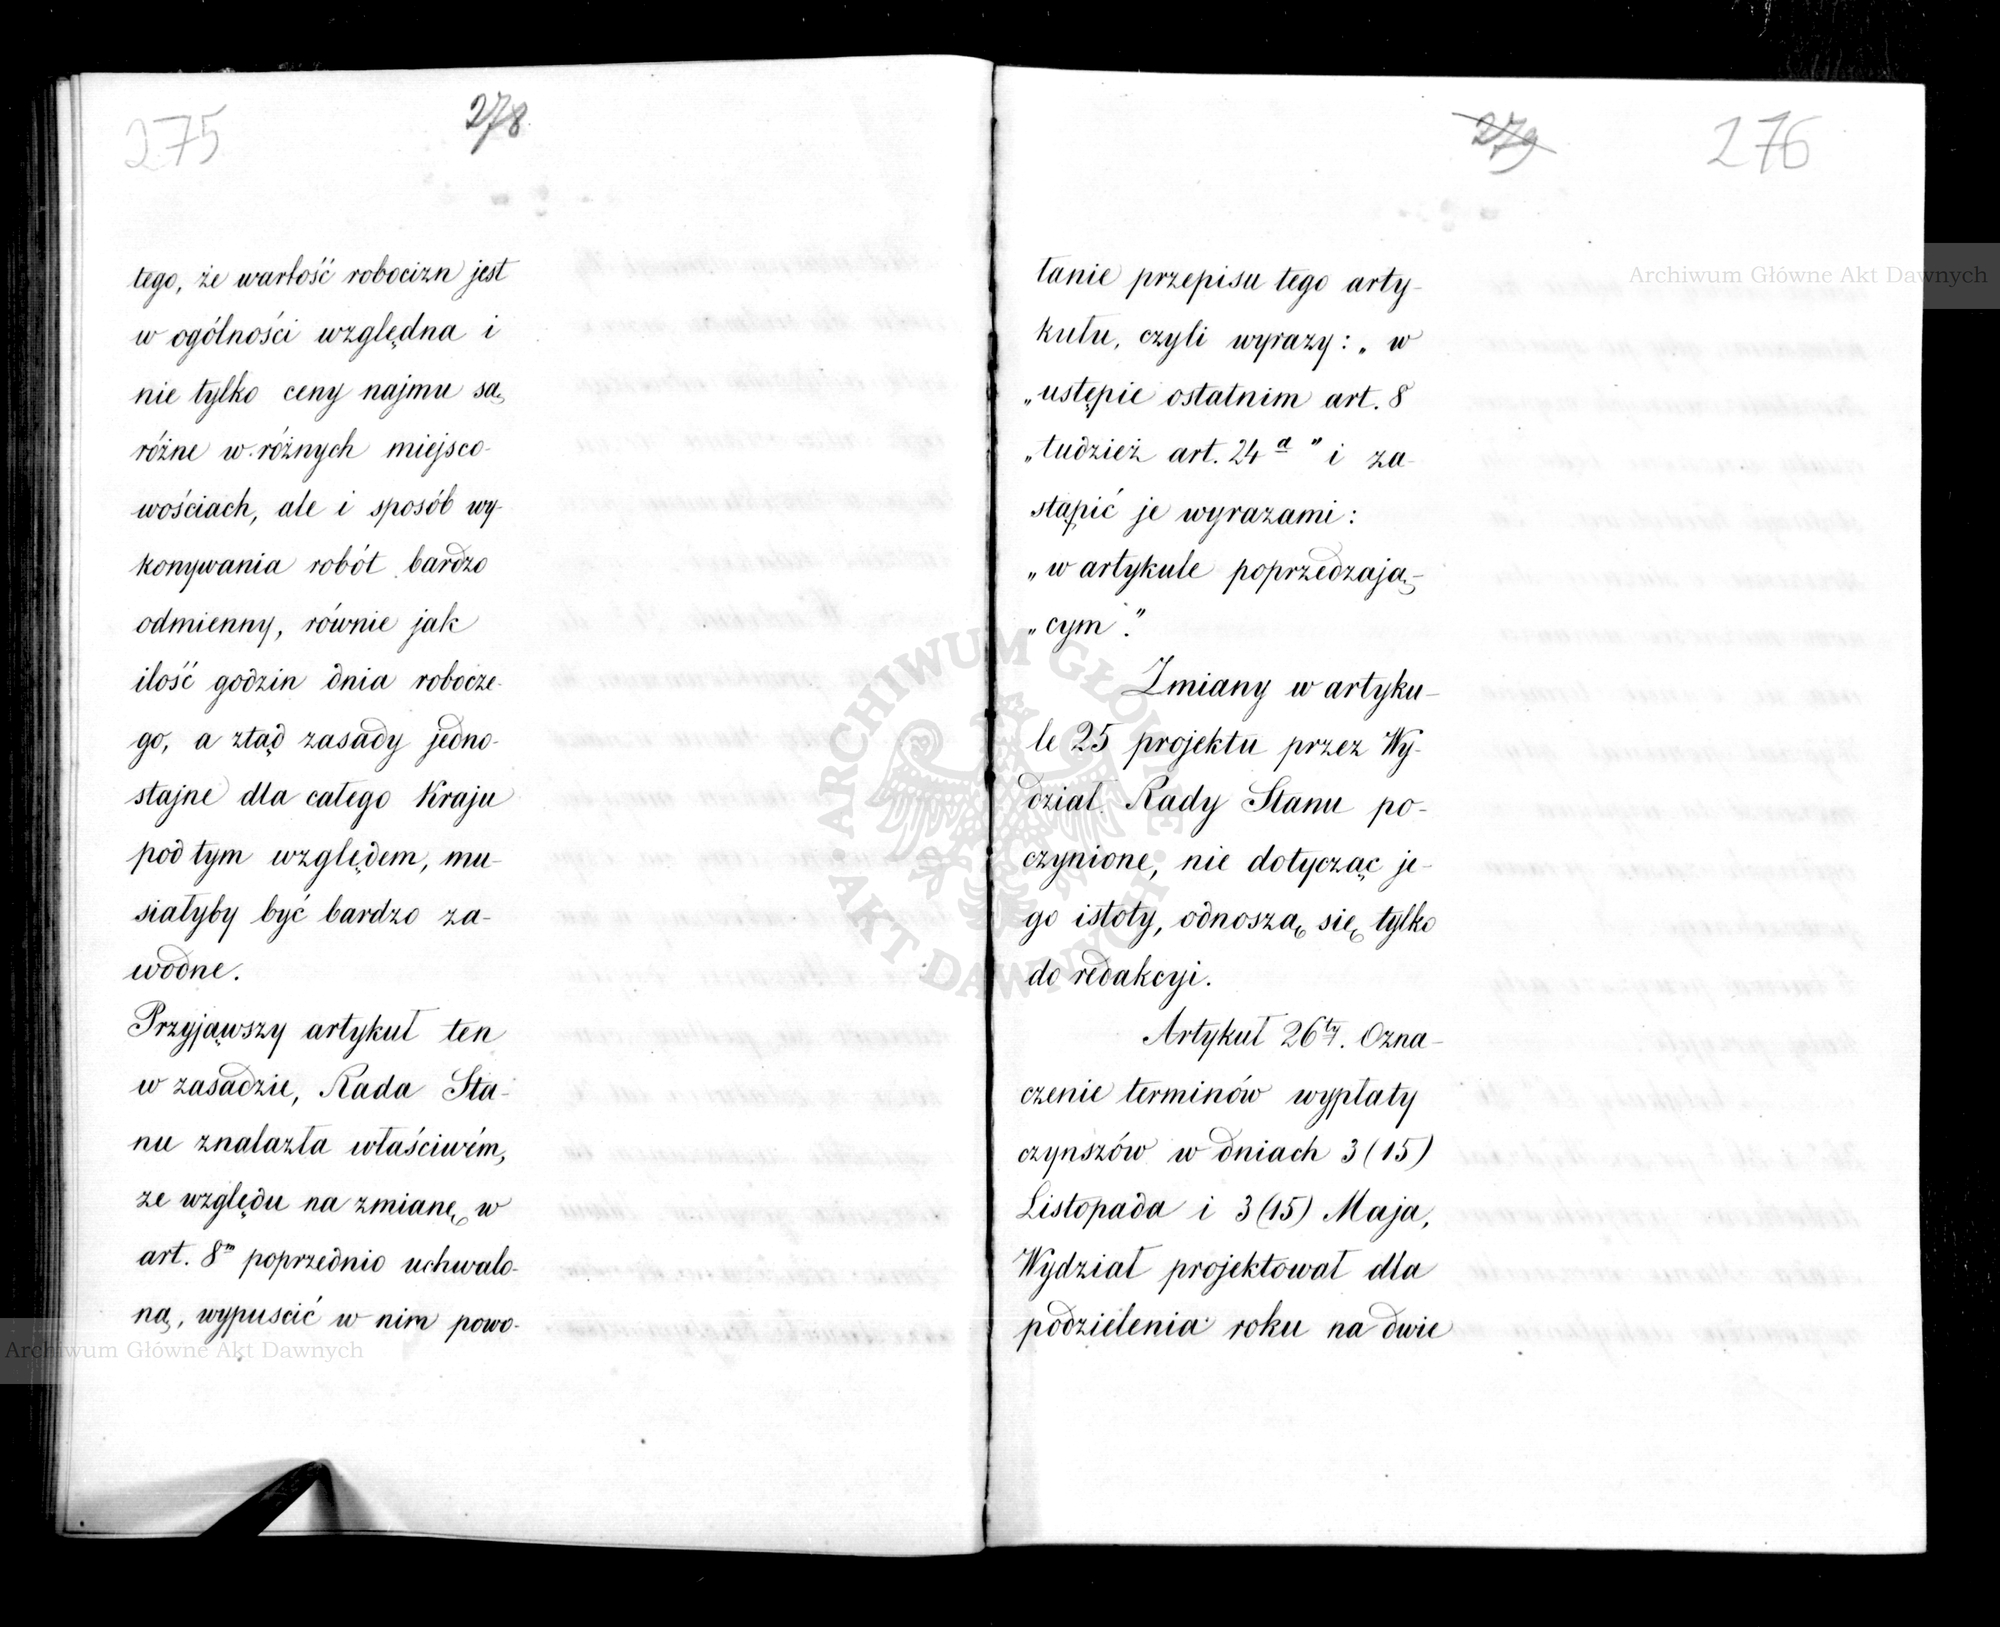 275
278
tego, że wartość robocizn jest
w ogólności względna i
nie tylko ceny najmu są
różne w różnych miejsco-
wościach, ale i sposób wy-
konywania robót bardzo
odmienny, równie jak
ilość godzin dnia robocze-
go, a ztąd zasady jedno-
stajne dla całego Kraju
pod tym względem, mu-
siałyby być bardzo za-
wodne.
Przyjąwszy artykuł ten
w zasadzie, Rada Sta-
nu znalazła właściwém,
ze względu na zmianę w
art. 8m poprzednio uchwalo-
ną, wypuscić w nim powo-
279
276
łanie przepisu tego arty-
kułu, czyli wyrazy: „w
„ustępie ostatnim art. 8
„tudzież art. 24 a" i za-
stąpić je wyrazami:
„w artykule poprzedzają-
„cym."
Zmiany w artyku-
le 25 projektu przez Wy-
dział Rady Stanu po-
czynione, nie dotycząc je-
go istoty, odnoszą się tylko
do redakcyi.
Artykuł 26ty. Ozna-
czenie terminów wypłaty
czynszów w dniach 3 (15)
Listopada i 3 (15) Maja,
Wydział projektował dla
podzielenia roku na dwie
Archiwum Główne Akt Dawnych
Archiwum Główne Akt Dawnych
ARCHIWUM GŁÓWNE
AKT DAWNYCH